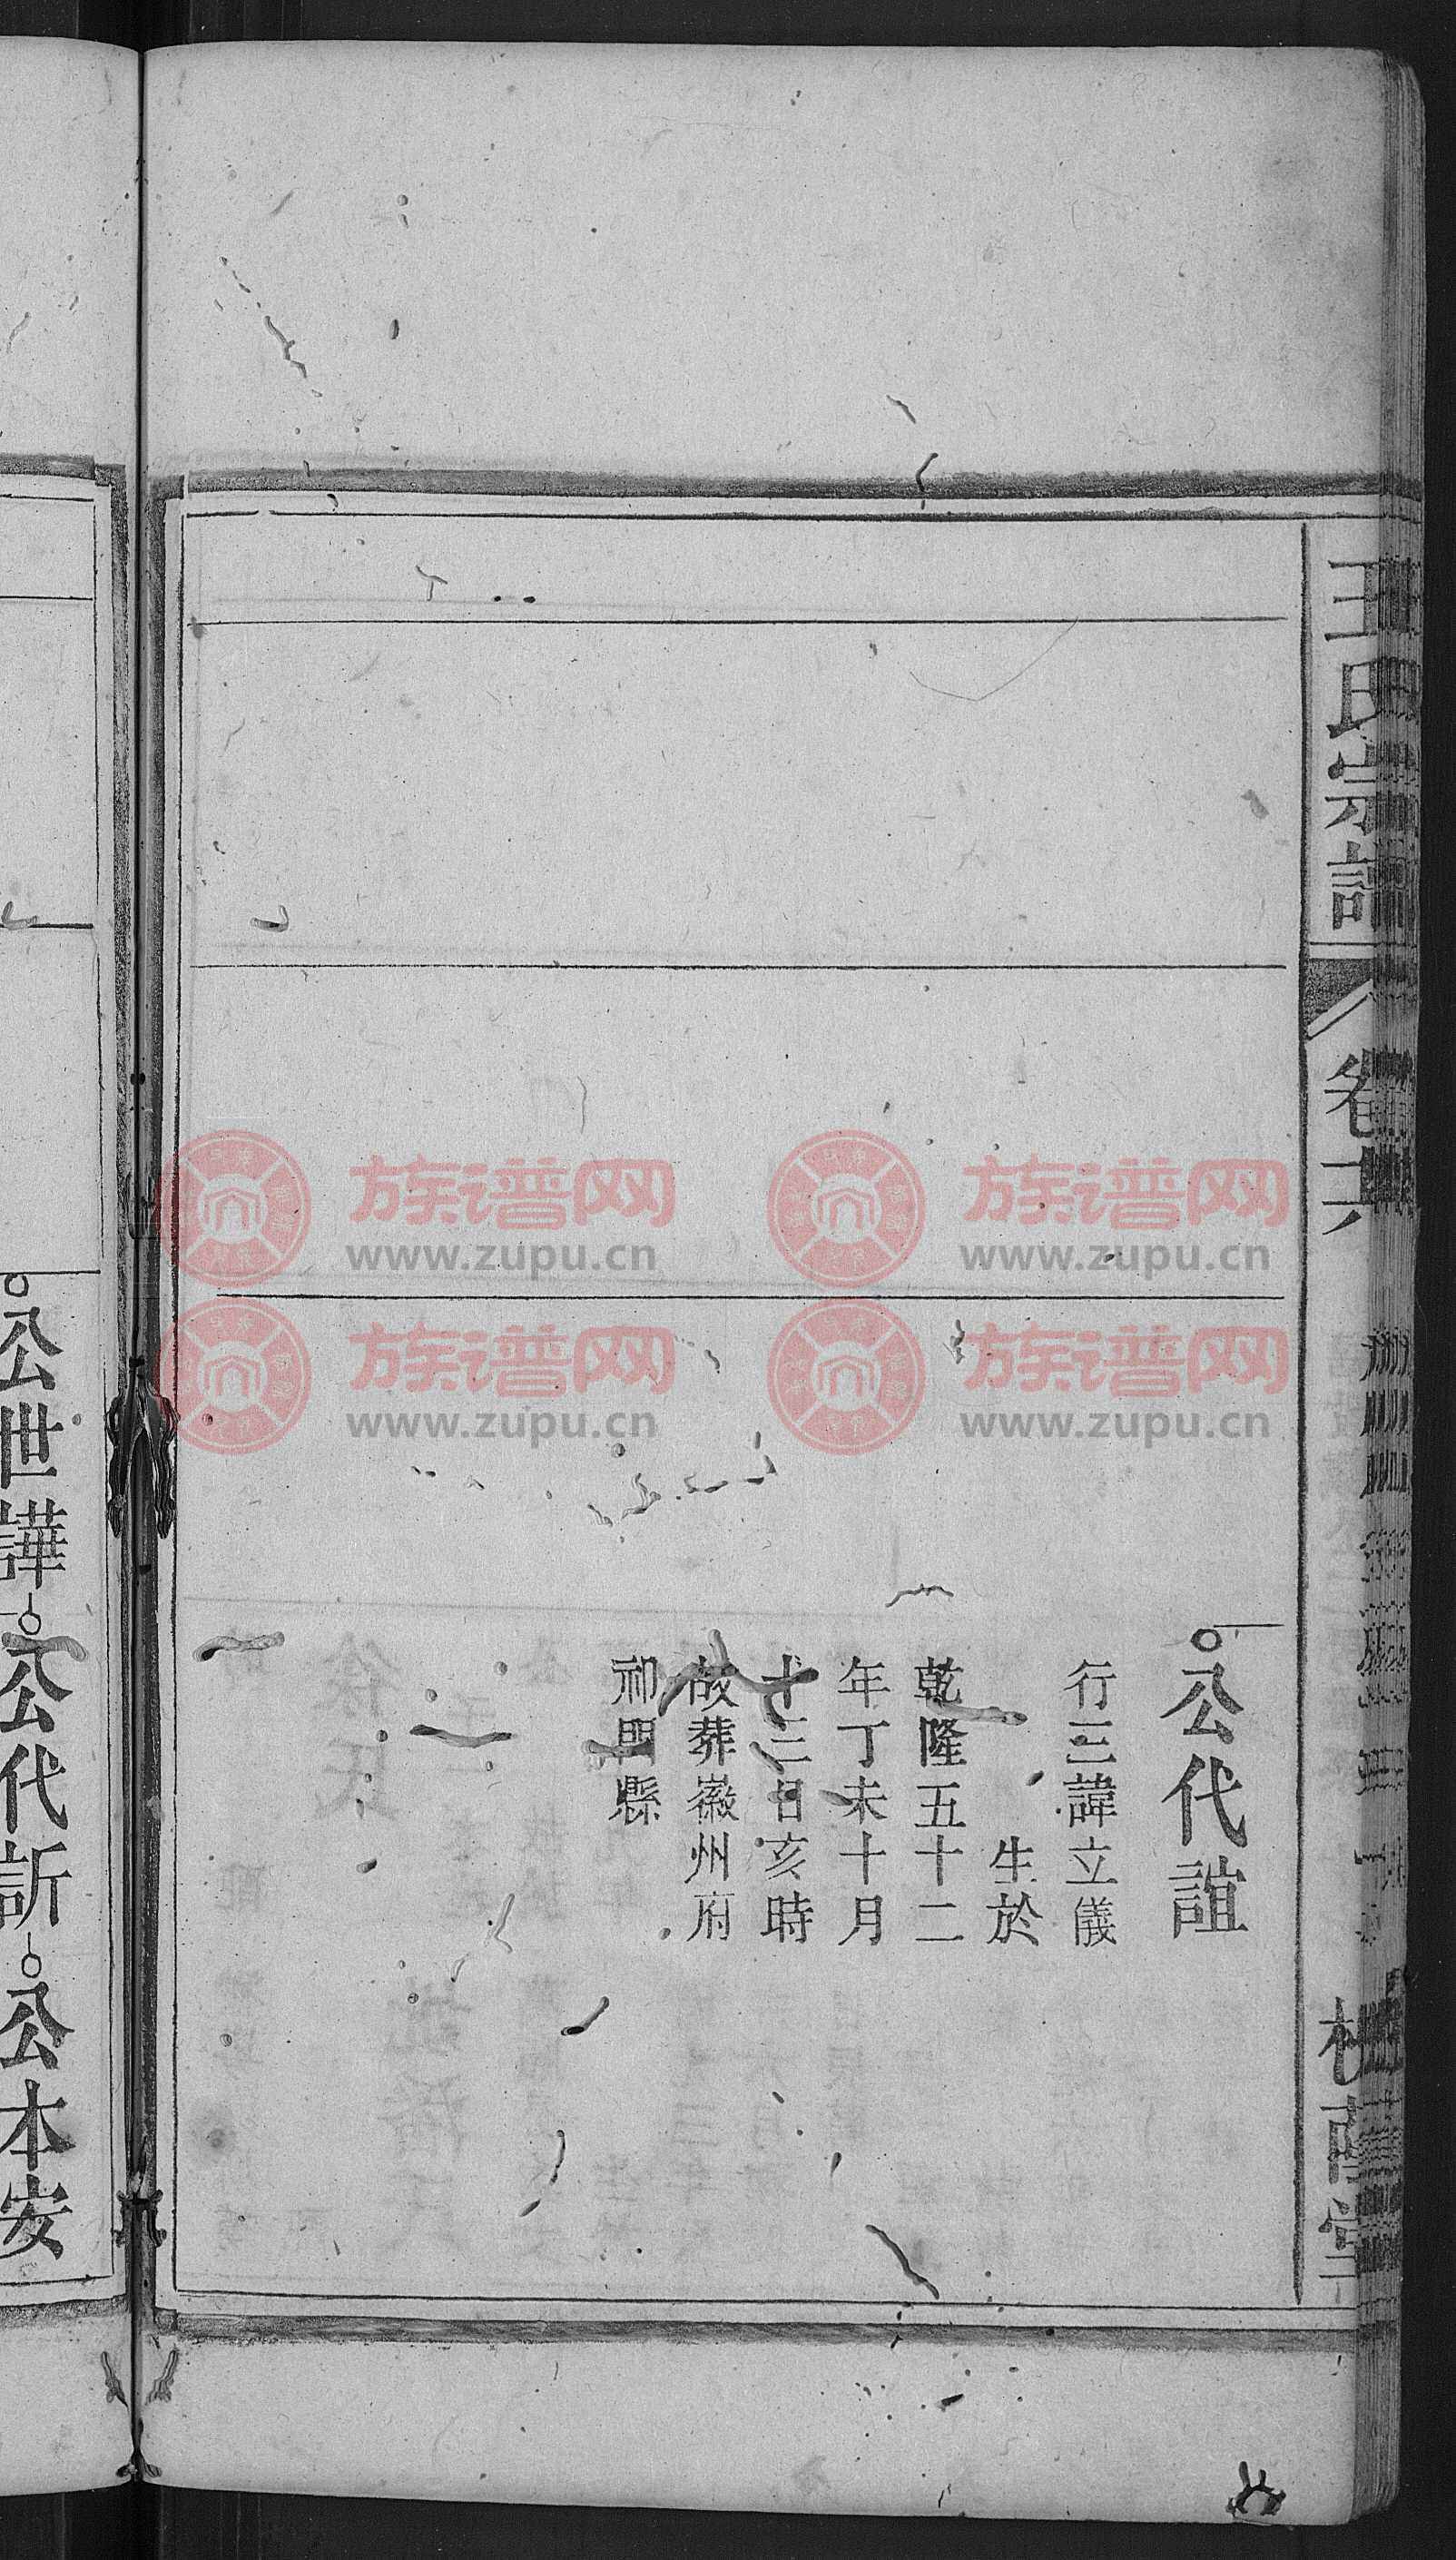 王氏宗譜
卷六
桂蔭堂
公代誼
行三諱立儀
生於
乾隆五十二
年丁未十月
十三日亥時
故葬徽州府
祁門縣
公世譁公代訢公本安
族谱网
www.zupu.cn
族谱网
www.zupu.cn
族谱网
www.zupu.cn
族谱网
www.zupu.cn